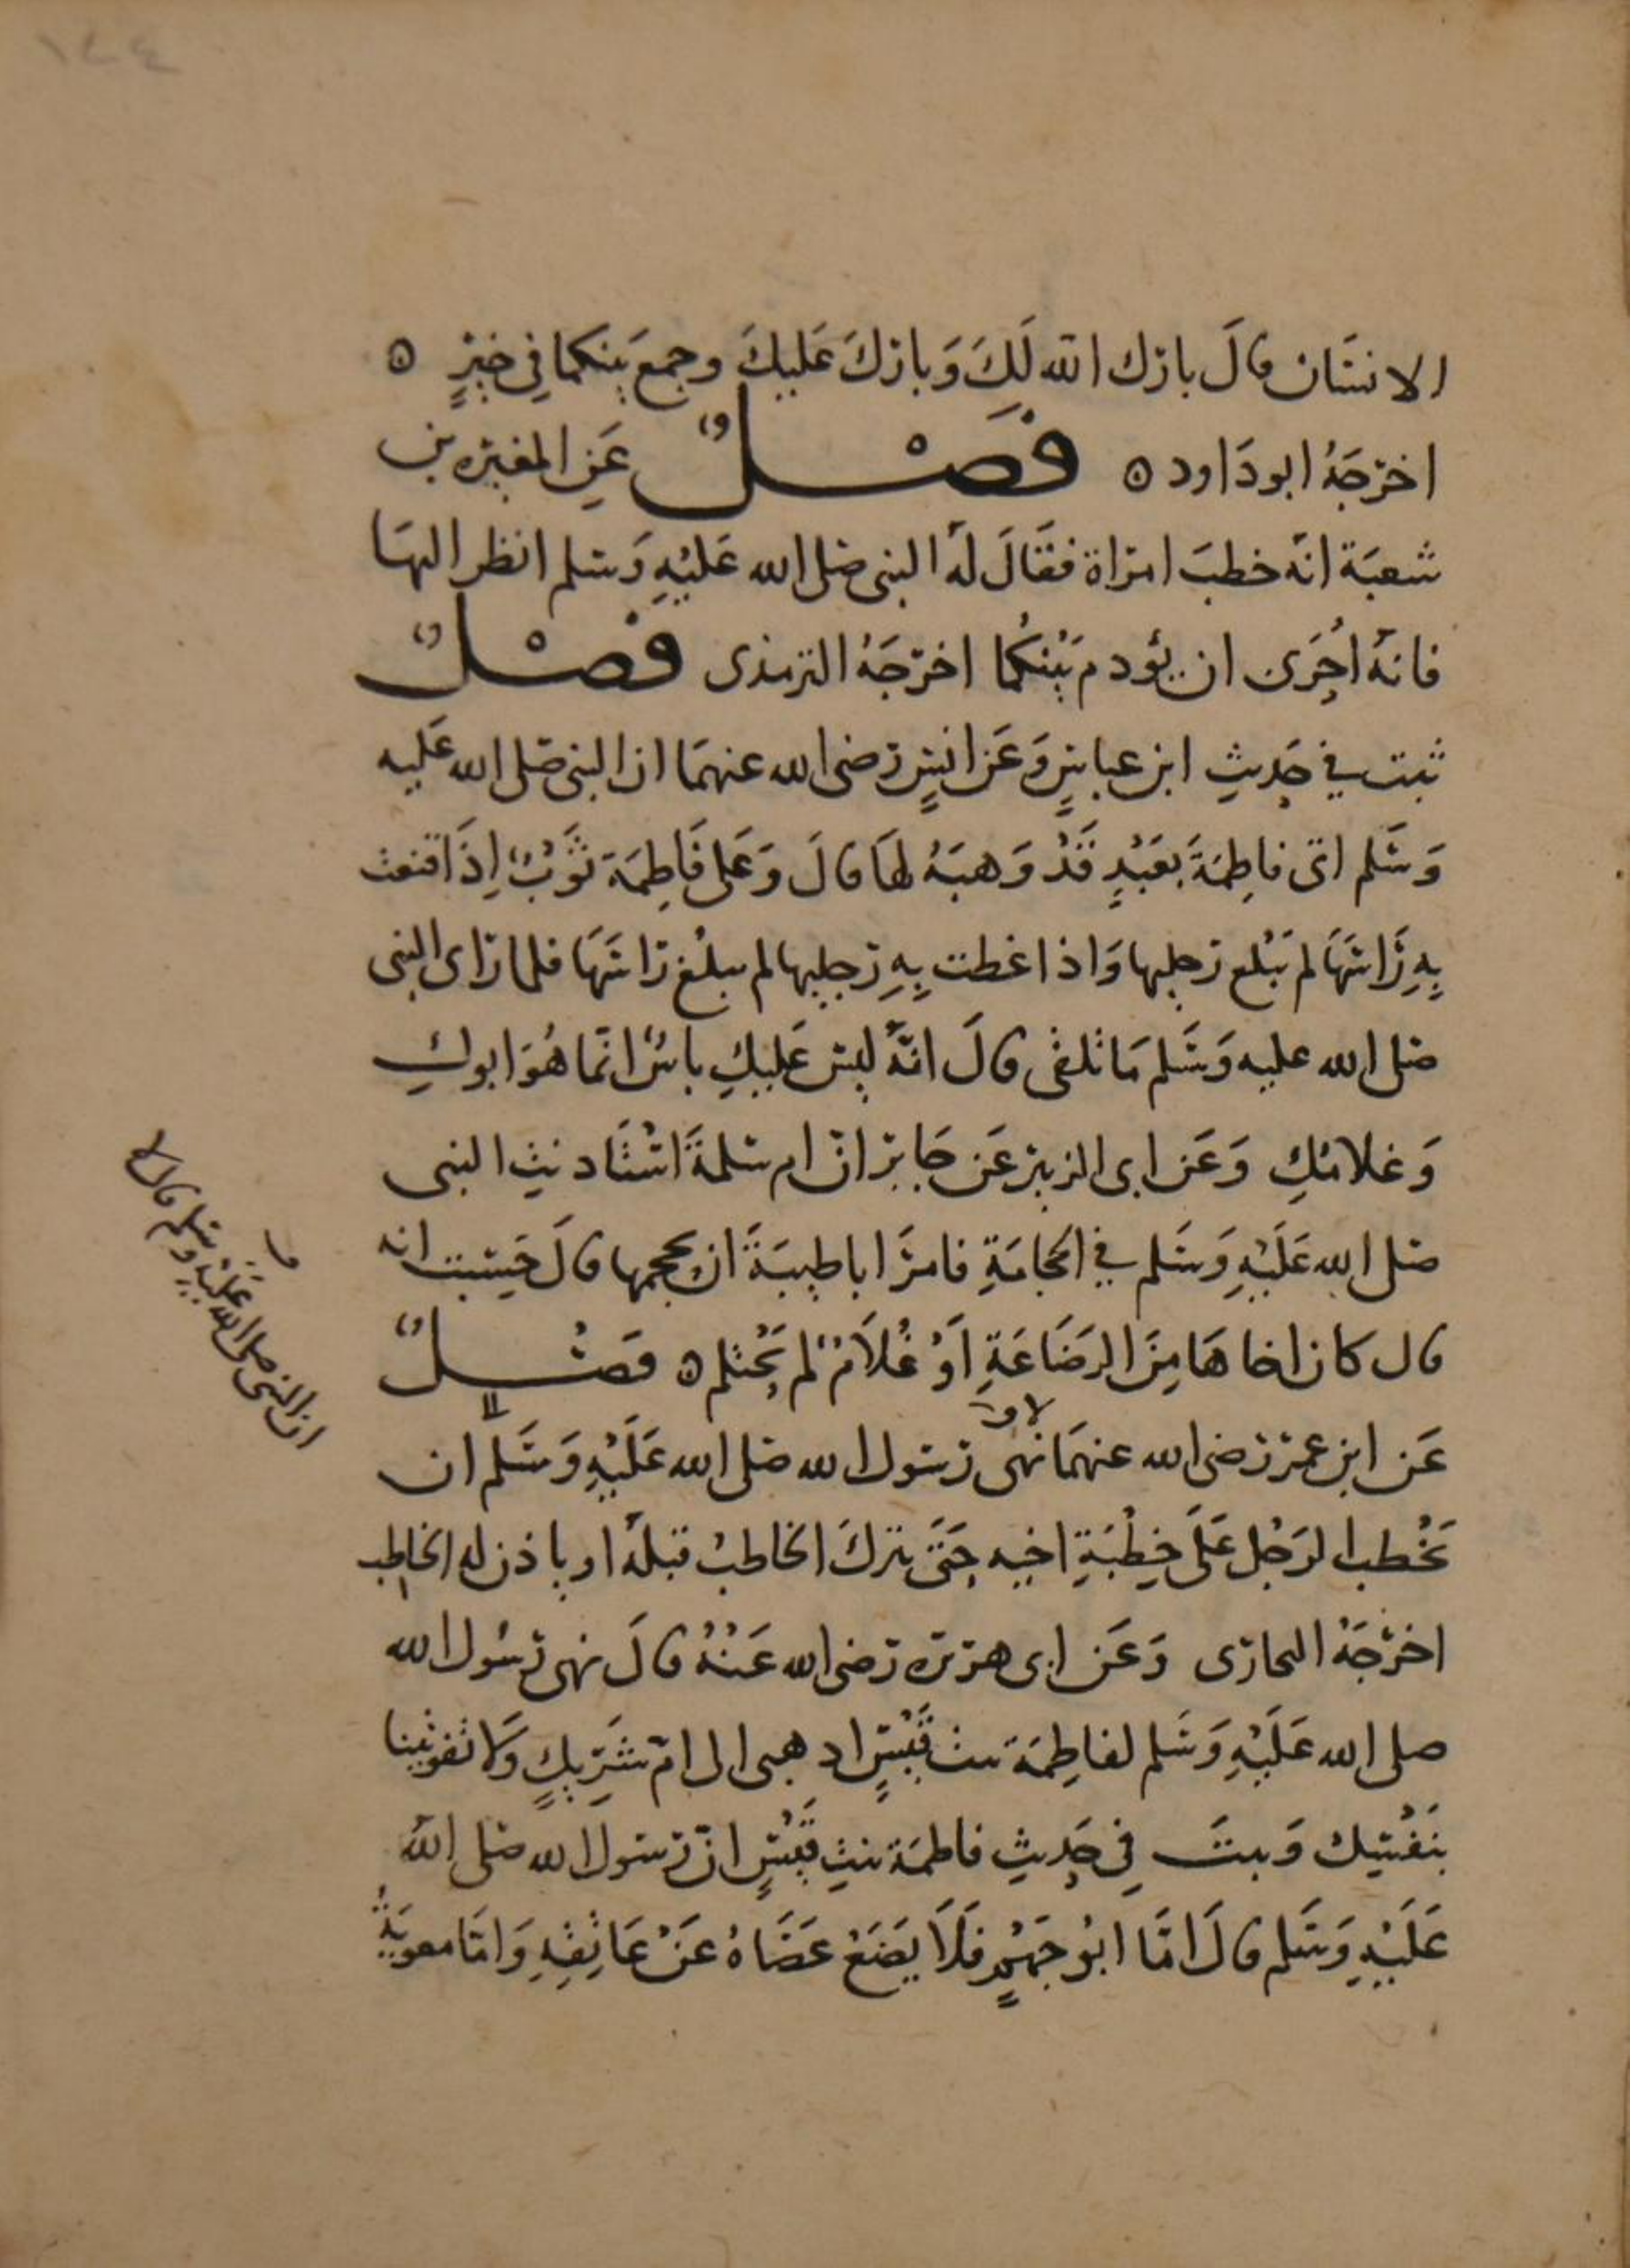 ١٤٤
الانسَان قالَ بارك الله لَكَ وَبارَكَ عَليكَ وجمعَ بينكما في خيرٍ ٥
اخرجَهُ ابو دَاود ٥ فَصْلٌ عَنِ المغيره بن
شعبَة انّه خطبَ امراة فقَالَ لهُ النبى صلى الله عَليْهِ وَسلم انظر اليهَا
فانهُ اَحرَى ان يؤدم بَيْنكُما اخرجَهُ الترمذى فَصْلٌ
ثبت في حَديثِ ابن عباسٍ وَعَن انسٍ رضى الله عنهمَا ان النبى صلى الله عَليه
وَسَلم اتى فاطِمَةَ بعَبْدٍ قَدْ وَهبَهُ لهَا قالَ وَعَلى فَاطِمَة ثَوْبٌ اِذَا قنعت
بِهِ رَاسَهَا لم يَبْلغ رجليها وَاذا غطت بِهِ رجليها لم يبلُغ رَاسَهَا فلما رَاى النبى
صلى الله عليه وَسَلم مَا تلقى قالَ انّهُ ليسَ عَليكِ باسٌ انّما هُوَ ابوكِ
وَغلامُكِ وَعَن ابى الزبير عَن جَابر انّ ام سلمةَ اسْتَاذنتِ النبى
صلى الله عَلَيْهِ وَسَلم في الحجامَةِ فامرَ ابا طيبَةَ ان يحجمها قالَ حَسِبت انه
قال كان اخاهَا مِنَ الرضَاعَةِ اَوْ غُلاَمٌ لم يَحْتلم ٥ فَصْلٌ
عَن ابن عمر رضى الله عنهمَا نهى رسول الله صلى الله عَلَيْهِ وَسَلّم ان
يَخْطب الرَجُل عَلَى خِطْبَةِ اخيه حَتَّى يترك الخاطبُ قبلَهُ او ياذن له الخاطب
اخرْجَهُ البخارى وَعَن ابى هريره رَضى الله عَنْهُ قالَ نهى رسُول الله
صلى الله عَلَيْهِ وَسَلم لفاطِمَة بنت قَيْسٍ اذهبى الى امّ شَرِيكٍ وَلا تفوتينا
بنَفْسِيك وَثبتَ في حَديثِ فاطمَة بنتِ قَيْسٍ انّ رسولَ الله صَلى اللهُ
عَلَيْهِ وَسَلم قالَ امَّا ابُو جَهْمٍ فَلاَ يَضَعْ عَصَاهُ عَنْ عَاتِقِهِ وَامّا معويَةُ
ان النبى صلى الله عَليْهِ وسلم قال لا